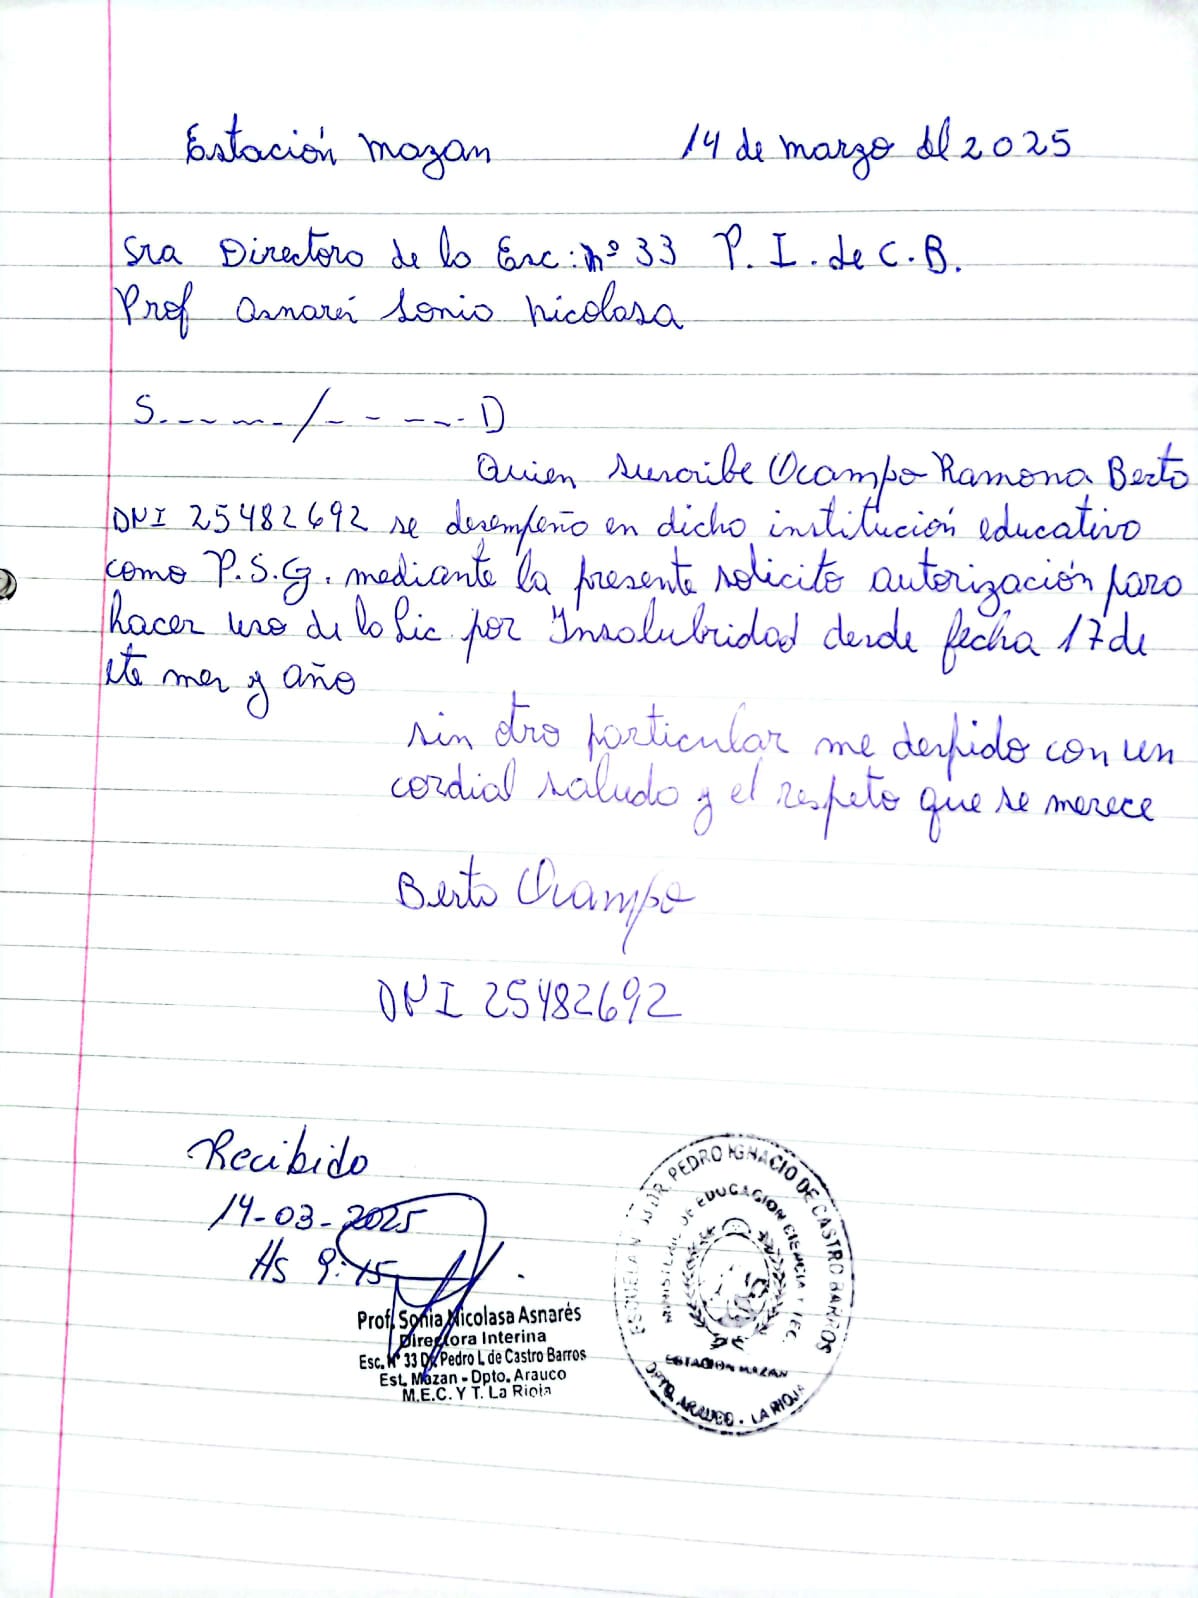 Estación Mazan 14 de marzo del 2025
Sra Directora de la Esc: nº 33 P. I. de C. B.
Prof Asnarés Sonia Nicolasa
S.-----/-------D
Quien suscribe Ocampo Ramona Berta
DNI 25482692 se desempeña en dicha institución educativa
como P.S.G. mediante la presente solicito autorización para
hacer uso de la Lic. por Insalubridad desde fecha 17 de
este mes y año
sin otro particular me despido con un
cordial saludo y el respeto que se merece
Berta Ocampo
DNI 25482692
Recibido
14-03-2025
Hs 9:15
Prof. Sonia Nicolasa Asnarés
Directora Interina
Esc. Nº 33 Dr. Pedro I. de Castro Barros
Est. Mazan - Dpto. Arauco
M.E.C. Y T. La Rioja
ESCUELA Nº 33 DR. PEDRO IGNACIO DE CASTRO BARROS
MINISTERIO DE EDUCACION CIENCIA Y TEC.
ESTACION MAZAN
DPTO. ARAUCO - LA RIOJA